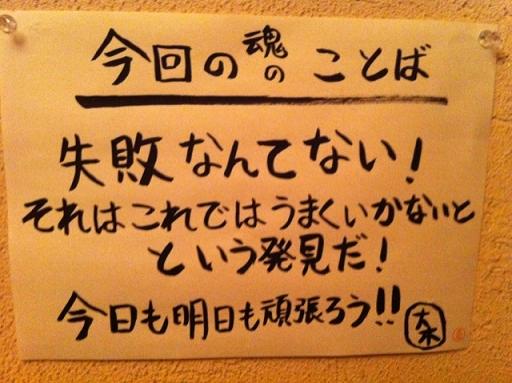 今回の魂のことば
失敗なんてない！
それはこれではうまくいかないと
という発見だ！
今日も明日も頑張ろう!!
大木